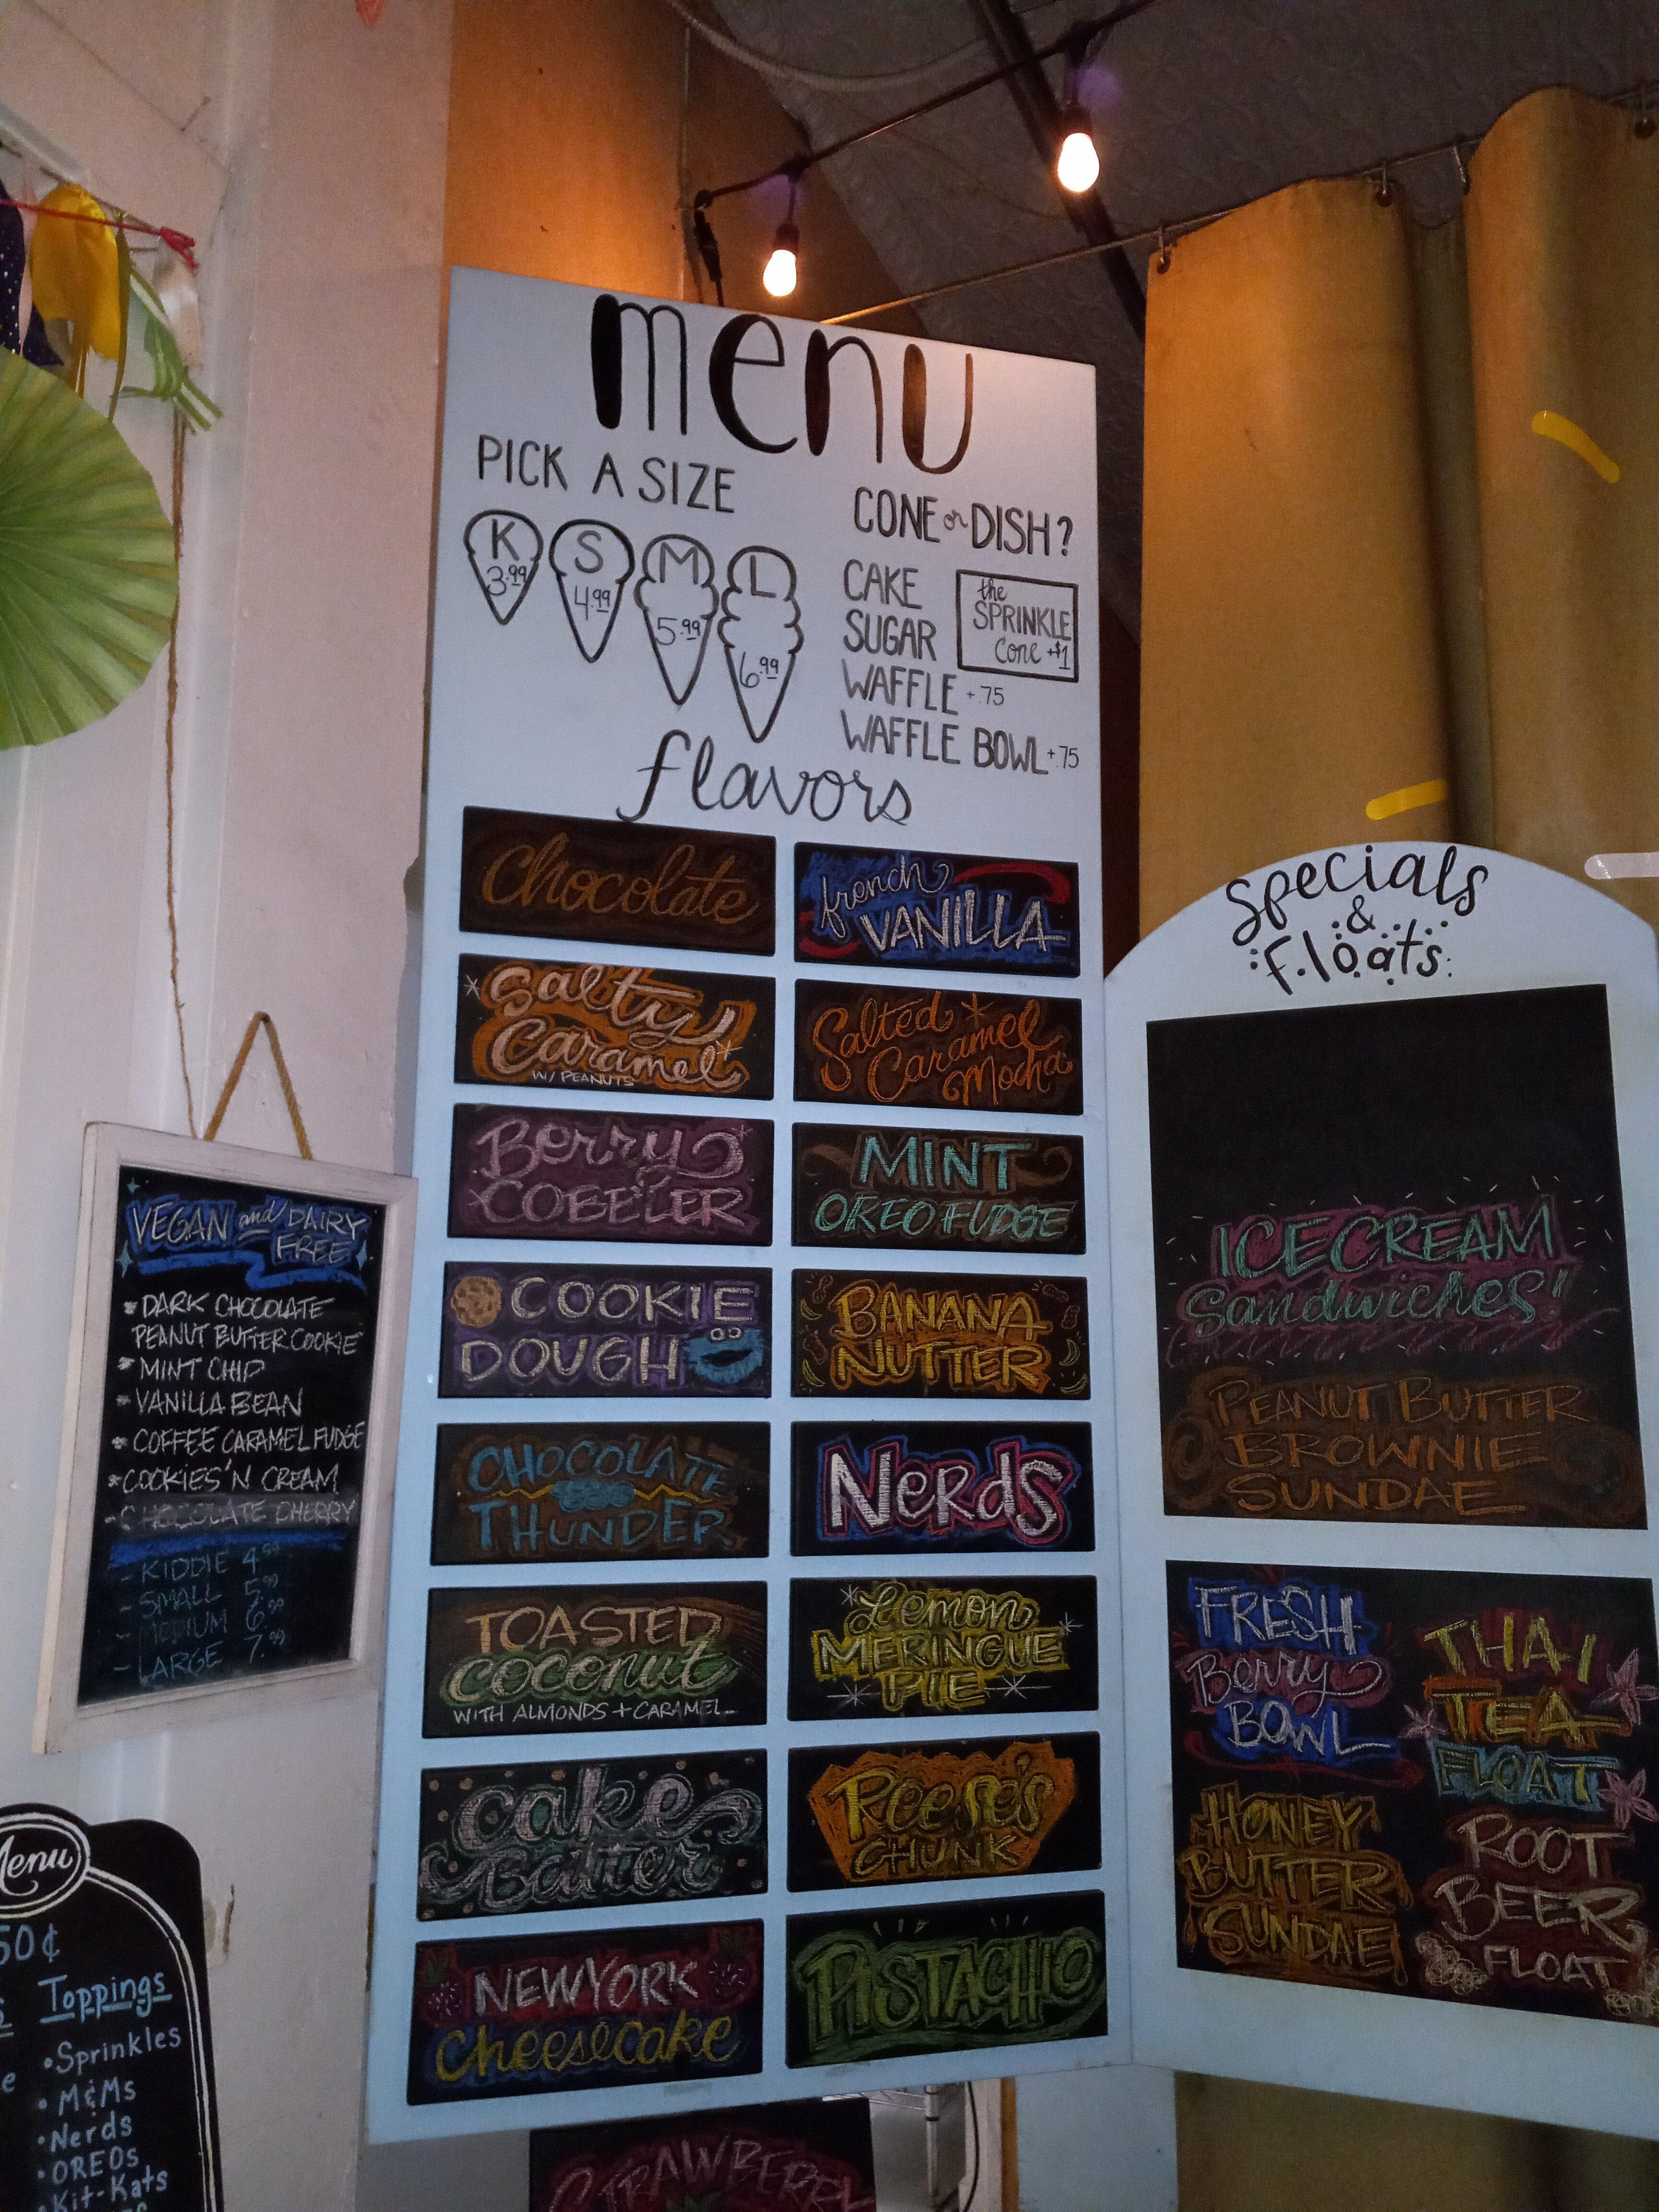 menu
PICK A SIZE
K
3.99
S
4.99
M
5.99
L
6.99
CONE or DISH?
CAKE
SUGAR
WAFFLE +.75
WAFFLE BOWL +.75
the
SPRINKLE
Cone +$1
flavors
Chocolate
french
VANILLA
Salty
Caramel
W/ PEANUTS
Salted
Caramel
Mocha
Berry
COBBLER
MINT
OREO FUDGE
COOKIE
DOUGH
BANANA
NUTTER
CHOCOLATE
THUNDER
NeRdS
TOASTED
coconut
WITH ALMONDS + CARAMEL
Lemon
MERINGUE
PIE
cake
Batter
Reese's
CHUNK
NEW YORK
cheesecake
PISTACHIO
STRAWBERRY
Specials
&
Floats
ICECREAM
Sandwiches!
PEANUT BUTTER
BROWNIE
SUNDAE
FRESH
Berry
BOWL
THAI
TEA
FLOAT
HONEY
BUTTER
SUNDAE
ROOT
BEER
FLOAT
VEGAN and DAIRY
FREE
DARK CHOCOLATE
PEANUT BUTTER COOKIE
MINT CHIP
VANILLA BEAN
COFFEE CARAMEL FUDGE
COOKIES 'N CREAM
- CHOCOLATE CHERRY
- KIDDIE 4.99
- SMALL 5.99
- MEDIUM 6.99
- LARGE 7.99
Menu
50¢
Toppings
• Sprinkles
• M&Ms
• Nerds
• OREOs
• Kit-Kats